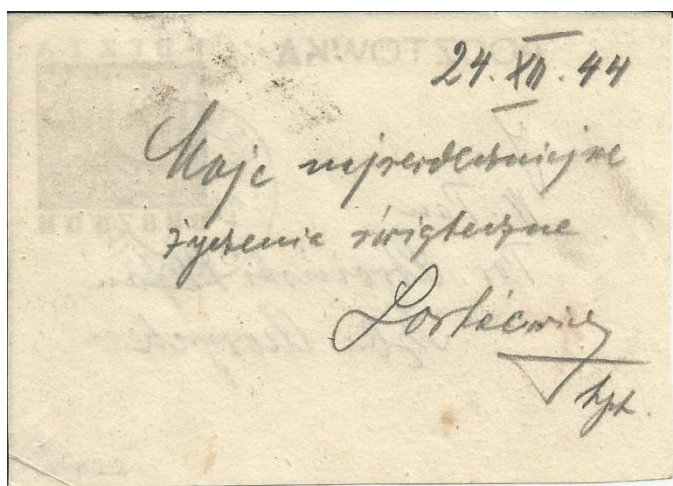 24. XII. 44
Moje najserdeczniejsze
życzenia świąteczne
kpt.